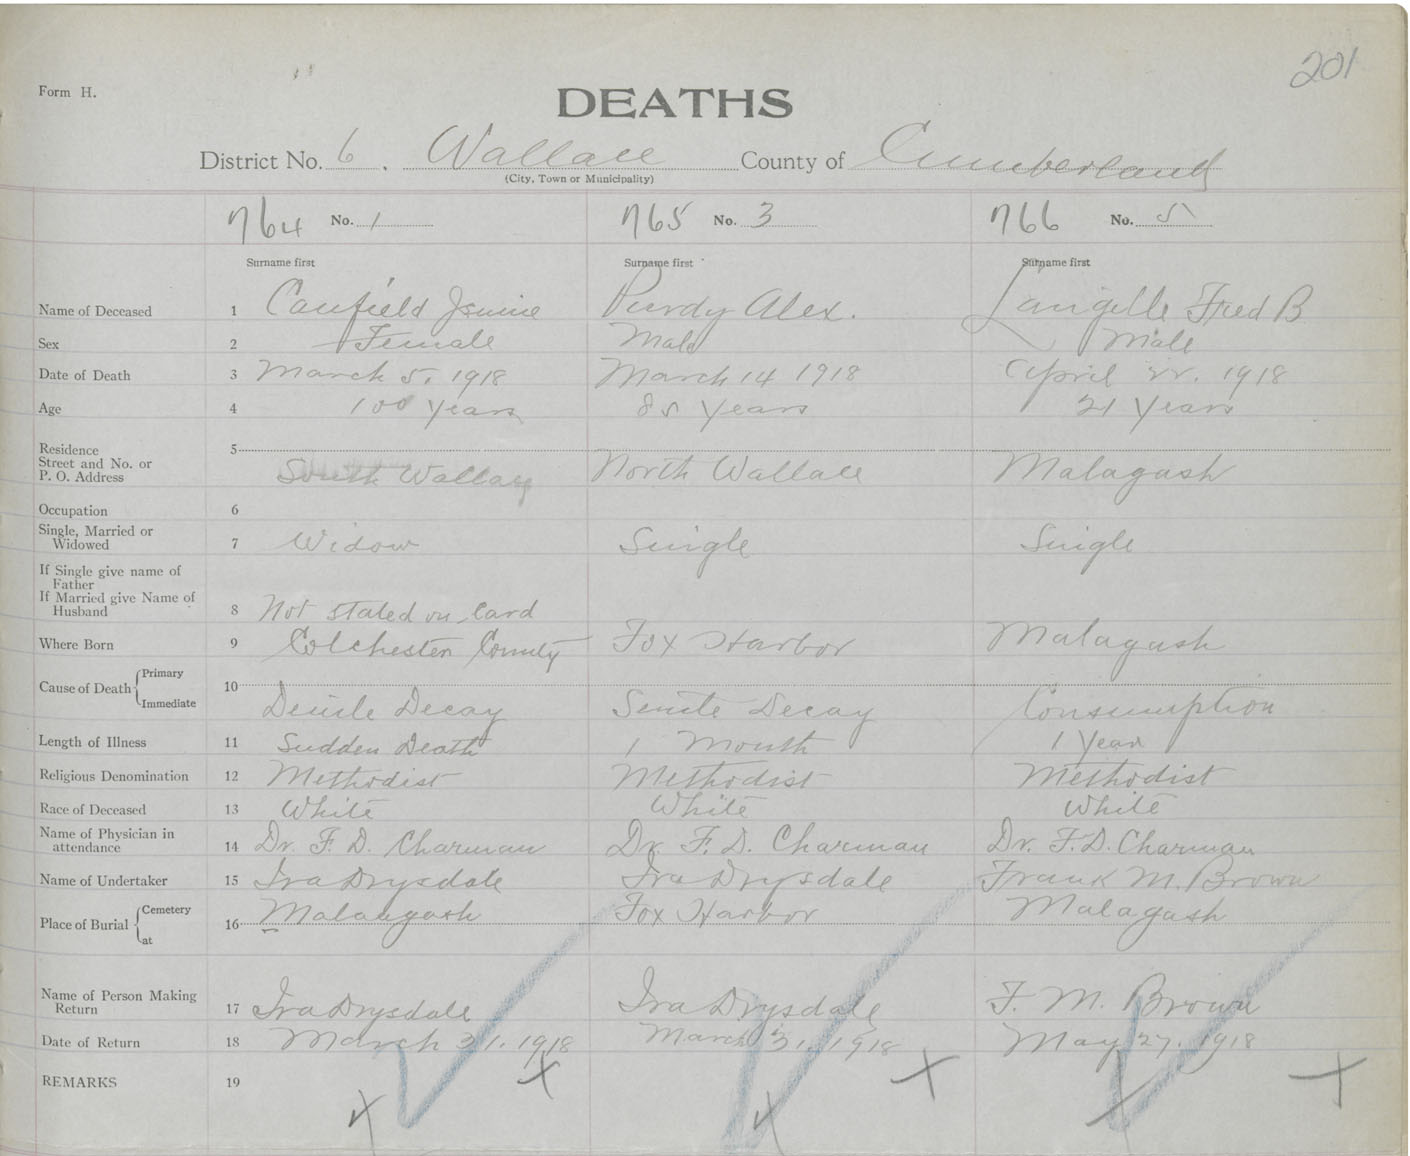 201
Form H.
DEATHS
District No. 6. Wallace County of Cumberland
(City, Town or Municipality)
764 No. 1 765 No. 3 766 No. 5
Surname first Surname first Surname first
Name of Deceased 1 Canfield Purdy Alex. Langille Fred B
Sex 2 Female Male Male
Date of Death 3 March 5, 1918 March 14 1918 April 22. 1918
Age 4 100 years 85 years 21 years
Residence 5
Street and No. or
P. O. Address South Wallace North Wallace Malagash
Occupation 6
Single, Married or
Widowed 7 Widow Single Single
If Single give name of
Father
If Married give Name of
Husband 8 Not stated on Card
Where Born 9 Colchester County Fox Harbor Malagash
Cause of Death { Primary 10
Immediate Senile Decay Senile Decay Consumption
Length of Illness 11 Sudden Death 1 Month 1 Year
Religious Denomination 12 Methodist Methodist Methodist
Race of Deceased 13 White White White
Name of Physician in
attendance 14 Dr. F. D. Charman Dr. F. D. Charman Dr. F. D. Charman
Name of Undertaker 15 Ira Drysdale Ira Drysdale Frank M. Brown
Place of Burial { Cemetery 16 Malaugash Fox Harbor Malagash
at
Name of Person Making
Return 17 Ira Drysdale Ira Drysdale F. M. Brown
Date of Return 18 March 31. 1918 March 31, 1918 May 27. 1918
REMARKS 19